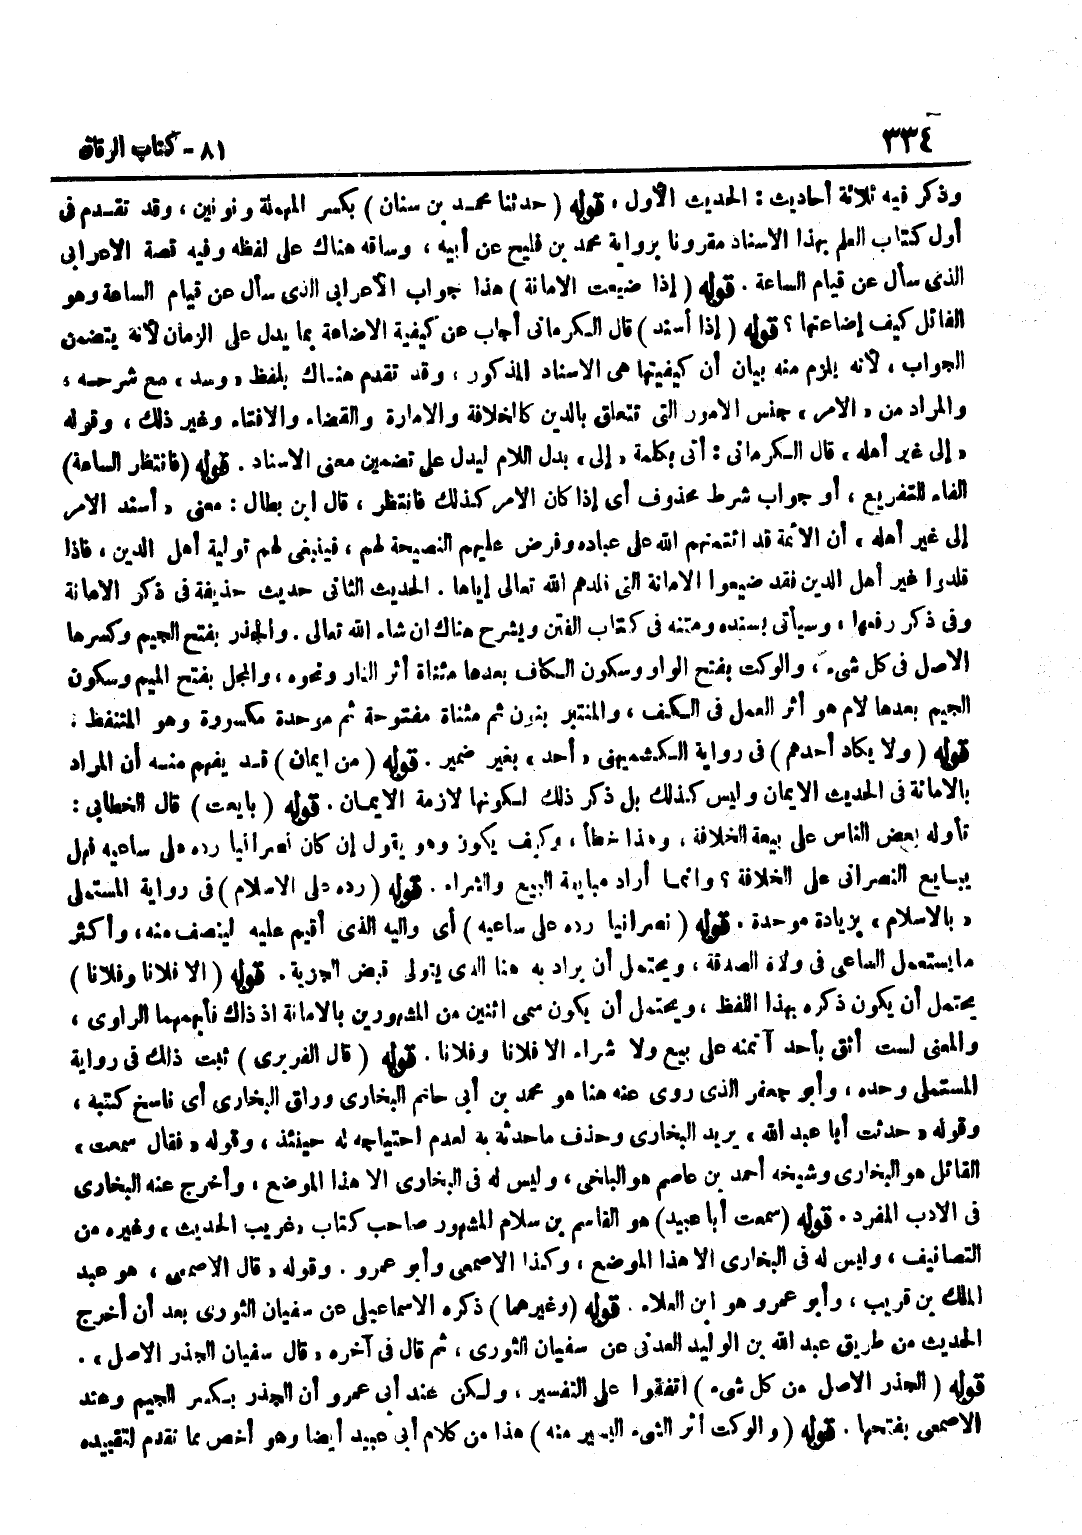 ٣٣٤
٨١ - كتاب الرقاق
وذكر فيه ثلاثة أحاديث : الحديث الأول ، قوله ( حدثنا محمد بن سنان ) بكسر المهملة ونونين ، وقد تقدم فى
أول كتاب العلم بهذا الاسناد مقرونا برواية محمد بن فليح عن أبيه ، وساقه هناك على لفظه وفيه قصة الاعرابى
الذى سأل عن قيام الساعة . قوله ( إذا ضيعت الامانة ) هذا جواب الأعرابى الذى سأل عن قيام الساعة وهو
القائل كيف إضاعتها ؟ قوله ( إذا أسند ) قال الكرمانى أجاب عن كيفية الاضاعة بما يدل على الزمان لأنه يتضمن
الجواب ، لأنه يلزم منه بيان أن كيفيتها هى الاسناد المذكور ، وقد تقدم هناك بلفظ « وسد » مع شرحه ،
والمراد من « الامر » جنس الامور التى تتعلق بالدين كالخلافة والامارة والقضاء والافتاء وغير ذلك ، وقوله
« إلى غير أهله » قال الكرمانى : أتى بكلمة « إلى » بدل اللام ليدل على تضمين معنى الاسناد . قوله (فانتظر الساعة)
الفاء للتفريع ، أو جواب شرط محذوف أى إذا كان الامر كذلك فانتظر ، قال ابن بطال : معنى « أسند الامر
إلى غير أهله » أن الائمة قد ائتمنهم الله على عباده وفرض عليهم النصيحة لهم ، فينبغى لهم تولية أهل الدين ، فاذا
قلدوا غير أهل الدين فقد ضيعوا الامانة التى قلدهم الله تعالى إياها . الحديث الثانى حديث حذيفة فى ذكر الامانة
وفى ذكر رفعها ، وسيأتى بسنده ومتنه فى كتاب الفتن ويشرح هناك ان شاء الله تعالى . والجذر بفتح الجيم وكسرها
الاصل فى كل شىء ، والوكت بفتح الواو وسكون الكاف بعدها مثناة أثر النار ونحوه ، والمجل بفتح الميم وسكون
الجيم بعدها لام هو أثر العمل فى الكف ، والمنتبر بنون ثم مثناة مفتوحة ثم موحدة مكسورة وهو المتنفط ،
قوله ( ولا يكاد أحدهم ) فى رواية الكشميهنى « أحد » بغير ضمير . قوله ( من ايمان ) قد يفهم منه أن المراد
بالامانة فى الحديث الايمان وليس كذلك بل ذكر ذلك لكونها لازمة الايمان . قوله ( بايعت ) قال الخطابى :
تأوله بعض الناس على بيعة الخلافة ، وهذا خطأ ، وكيف يكون وهو يقول إن كان نصرانيا رده على ساعيه فهل
يبايع النصرانى على الخلافة ؟ وانما أراد مبايعة البيع والشراء . قوله ( رده على الاسلام ) فى رواية المستملى
« بالاسلام » بزيادة موحدة . قوله ( نصرانيا رده على ساعيه ) أى واليه الذى أقيم عليه لينصف منه ، وأكثر
ما يستعمل الساعى فى ولاة الصدقة ، ويحتمل أن يراد به هنا الذى يتولى قبض الجزية . قوله ( الا فلانا وفلانا )
يحتمل أن يكون ذكره بهذا اللفظ ، ويحتمل أن يكون سمى اثنين من المشهورين بالامانة اذ ذاك فأبهمهما الراوى ،
والمعنى لست أثق بأحد آتمنه على بيع ولا شراء الا فلانا وفلانا . قوله ( قال الفربرى ) ثبت ذلك فى رواية
المستملى وحده ، وأبو جعفر الذى روى عنه هنا هو محمد بن أبى حاتم البخارى وراق البخارى أى ناسخ كتبه ،
وقوله « حدثت أبا عبد الله » يريد البخارى وحذف ما حدثه به لعدم احتياجه له حينئذ ، وقوله « فقال سمعت »
القائل هو البخارى وشيخه أحمد بن عاصم هو البلخى ، وليس له فى البخارى الا هذا الموضع ، وأخرج عنه البخارى
فى الادب المفرد . قوله (سمعت أبا عبيد) هو القاسم بن سلام المشهور صاحب كتاب « غريب الحديث » وغيره من
التصانيف ، وليس له فى البخارى الا هذا الموضع ، وكذا الاصمعى وأبو عمرو . وقوله « قال الاصمعى » هو عبد
الملك بن قريب ، وأبو عمرو هو ابن العلاء . قوله (وغيرهما) ذكره الاسماعيلى عن سفيان الثورى بعد أن أخرج
الحديث من طريق عبد الله بن الوليد العدنى عن سفيان الثورى ، ثم قال فى آخره « قال سفيان الجذر الاصل » .
قوله ( الجذر الاصل من كل شىء ) اتفقوا على التفسير ، ولكن عند أبى عمرو أن الجذر بكسر الجيم وعند
الاصمعى بفتحها . قوله ( والوكت أثر الشىء اليسير منه ) هذا من كلام أبى عبيد أيضا وهو أخص مما تقدم لتقييده